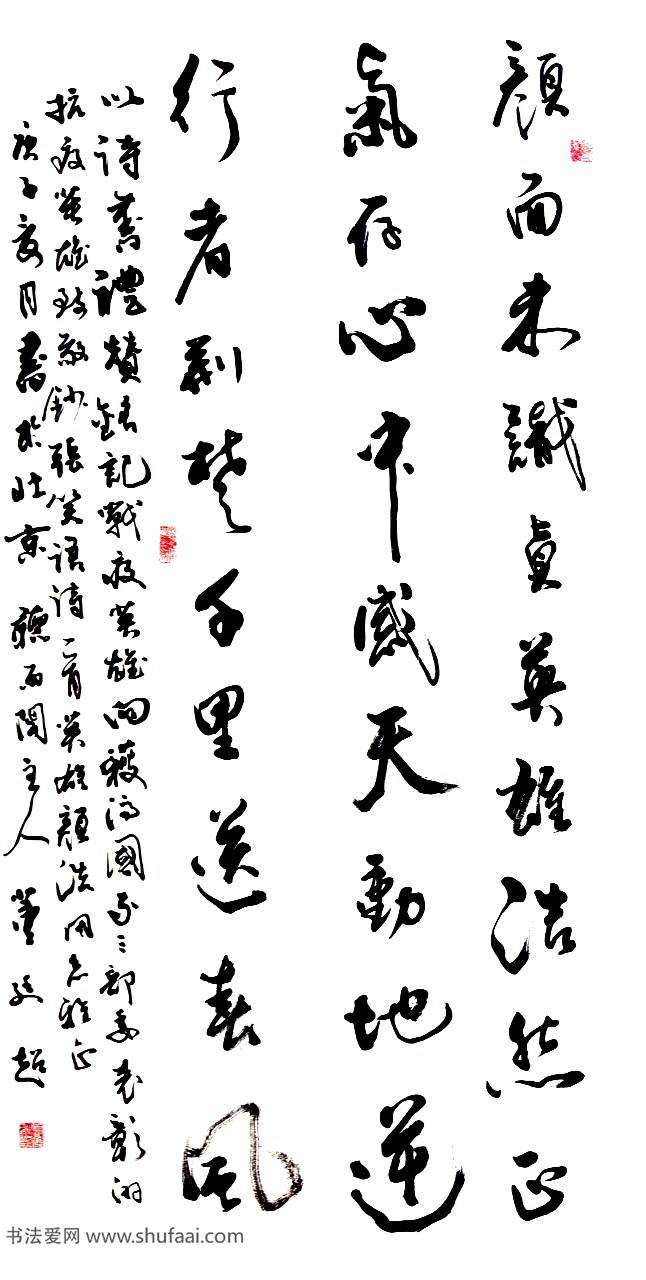 顏面未識真英雄浩然正
氣存心中感天動地逆
行者荊楚千里送春風
以詩書禮贊銘記戰疫英雄向獲得國家三部委表彰
抗疫英雄致敬鈔張笑語詩一首英雄顏浩同志雅正
庚子夏月書於北京聽雨閣主人董超
书法爱网 www.shufaai.com